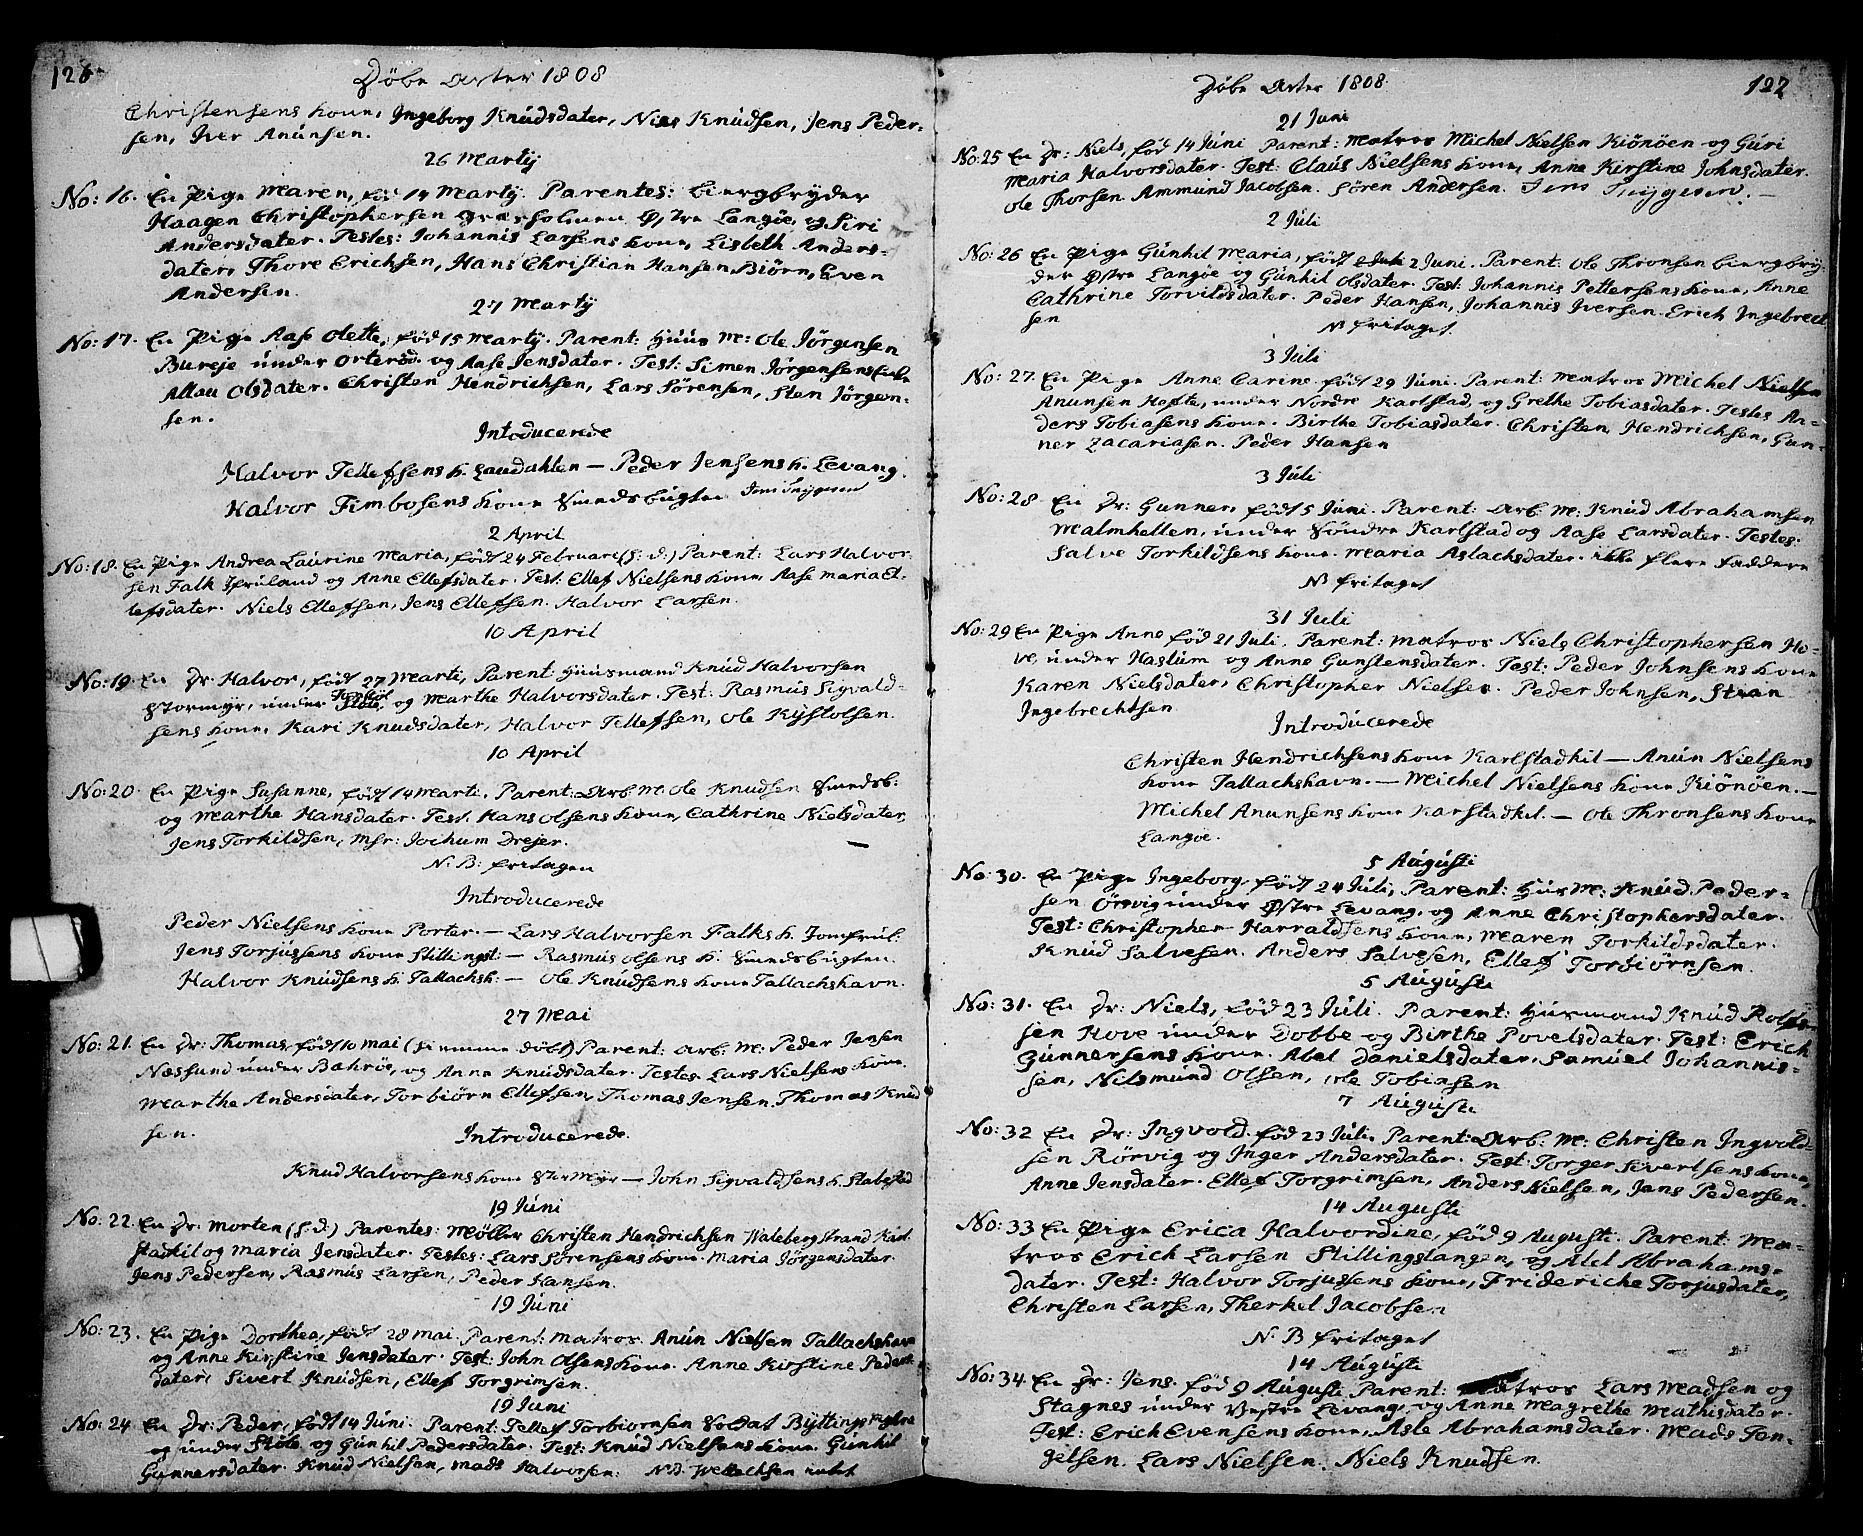 Døbe Acter 1808
Christensens kone, Ingeborg Knudsdater, Niels Knudsen, Jens Peder-
sen, Iver Anunsen.
26 Martij
No: 16. En Pige Maren, fød 14 Martij. Parentes: biergbryder
Haagen Christophersen Østre Langöe, og Siri
Andersdater. Testes: Johannis Larsens kone, Lisbeth Anders-
dater, Thore Erichsen, Hans Christian Hansen Biörn, Even
Andersen.
27 Martij
No: 17. En Pige Aase Olette, fød 15 Martij. Parent: Huus M: Ole Jörgensen
Bureje under Orteröd og Aase Jensdater. Test: Simen Jörgensens
Olsdater. Christen Hendrichsen, Lars Sörensen, Sten Jörgen-
sen.
Introducerede
Halvor Tellefsens k. — Peder Jensens k. Levang.
Halvor Timbosens kone Smedsbugten
2 April
No: 18. En Pige Andrea Laurine Maria, født 24 Februari (h: d:) Parent: Lars Halvor-
sen Falk Jfruland og Anne Ellefsdater. Test: Ellef Nielsens kone, Aase Maria El-
lefsdater. Niels Ellefsen, Jens Ellefsen. Halvor Larsen.
10 April
No: 19. En Dr. Halvor, født 27 Marti, Parent Huusmand Knud Halvorsen
Stormyr, under Støle, og Marthe Halvorsdater. Test: Rasmus Sigvald-
sens kone, Kari Knudsdater, Halvor Tellefsen, Ole Kijstolsen.
10 April
No: 20. En Pige Susanne, født 14 Marti. Parent: Arb M: Ole Knudsen Smedsb:
og Marthe Hansdater. Test. Hans Olsens kone, Cathrine Nielsdater,
Jens Torkildsen, Msr: Jochum Drejer.
N. B: fritagen
Introducerede
Peder Nielsens kone Porter. — Lars Halvorsen Falks k. Jomfrul:
Jens Torjussens kone Stillingst: — Rasmus Olsens k. Smedsbugten.
Halvor Knudsens k. Tallachsh: — Ole Knudsens kone Tallachshavn.
27 Mai
No: 21. En Dr: Thomas, født 10 Mai (hiemme døbt) Parent: Arb. M: Peder Jensen
Næssund under Bahröe, og Anne Knudsdater. Testes. Lars Nielsens kone.
Marthe Andersdater, Torbiörn Ellefsen, Thomas Jensen, Thomas Knud
sen.
Introducerede.
Knud Halvorsens kone Stormyr — John Sigvaldsens k. Stabestad
19 Juni
No: 22. En Dr: Morten (h: d:) Parentes: Møller Christen Hendrichsen Walebergstrand Karl-
stadkil og Maria Jensdater. Testes: Lars Sörensens kone. Maria Jörgensdater
Jens Pedersen, Rasmus Larsen, Peder Hansen.
19 Juni
No: 23. En Pige Dorthea, født 28 Mai. Parent: Matros Anun Nielsen Tallachshavn
og Anne Kirstine Jensdater. Test: John Olsens kone. Anne Kirstine Peders-
dater, Sivert Knudsen, Ellef Torgrimsen.
19 Juni
No: 24 En Dr: Peder, født 14 Juni: Parent: Tellef Torbiornsen Soldat
og under Støle og Gunhil Pedersdater. Test: Knud Nielsens kone. Gunhil
Gunnersdater. Knud Nielsen, Mads Halvorsen.
Døbe Acter 1808
127
21 Juni
No: 25 En Dr: Niels, fød 14 Juni Parent: Matros Michel Nielsen Kiönöen og Guri
Maria Halvorsdater. Test: Claus Nielsens kone, Anne Kirstine Johnsdater.
Ole Thorsen. Ammund Jacobsen. Sören Andersen.
2 Juli
No: 26 En Pige Gunhil Maria, født 2 Juni. Parent: Ole Thronsen biergbry-
der Østre Langöe og Gunhil Olsdater. Test: Johannis Pettersens kone, Anne
Cathrine Torvildsdater. Peder Hansen, Johannis Iversen. Erich Ingebrect
sen
NB fritaget.
3 Juli
No: 27. En Pige Anne Carine født 29 Juni. Parent: Matros Michel Nielsen
Anunsen Hefte, under Nordre Karlstad, og Grethe Tobiasdater. Testes An-
ders Tobiasens kone. Birthe Tobiasdater. Christen Hendrichsen, Gun-
ner Zacariasen. Peder Hansen
3 Juli
No: 28 En Dr: Gunner, født 5 Juni. Parent: Arb. M: Knud Abrahamsen
Malmhellen, under Söndre Karlstad og Aase Larsdater. Testes.
Salve Torkildsens kone. Maria Aslachsdater. ikke flere Faddere
NB fritaget
31 Juli
No: 29 En Pige Anne fød 21 Juli. Parent: Matros Niels Christophersen Ho-
ve, under Haslum og Anne Gunstensdater. Test: Peder Johnsens kone
Karen Nielsdater, Christopher Nielsen. Peder Johnsen,
Ingebrechtsen
Introducerede
Christen Hendrichsens kone Karlstadkil — Anun Nielsens
kone Tallachshavn. — Michel Nielsens kone Kiönöen. —
Michel Anunsens kone Karstadkil. — Ole Thronsens kone
Langöe.
5 Augusti
No: 30. En Pige Ingeborg, født 24 Juli, Parent: Hus M: Knud Peder-
sen Örsvig under Østre Levang, og Anne Christophersdater.
Test: Christopher Harraldsens kone, Maren Torkildsdater.
Knud Salvesen. Anders Salvesen, Ellef Torbiörnsen.
5 Augusti
No: 31. En Dr: Niels, fød 23 Juli. Parent: Husmand Knud
sen Hove under Dobbe og Birthe Povelsdater. Test: Erich
Gunnersens kone. Abel Danielsdater, Samuel Johannis-
sen, Nilsmund Olsen, Ole Tobiasen
7 Augusti
No: 32 En Dr: Ingvold fød 23 Juli. Parent: Arb. M: Christen Ingvold-
sen Rörvig og Inger Andersdater. Test: Torger Sivertsens kone,
Anne Jensdater. Ellef Torgrimsen, Anders Nielsen, Jens Pedersen.
14 Augusti
No: 33 En Pige Erica Halvordine, fød 9 Augusti. Parent: Ma-
tros Erich Larsen Stillingstangen, og Abraham-
dater. Test: Halvor Torjussens kone, Frideriche Torjusdater,
Christen Larsen, Therkel Jacobsen
N. B fritaget
14 Augusti
No: 34. En Dr: Jens. fød 9 Augusti Parent: Matros Lars Madsen og
Stagnes under Vestre Levang, og Anne Magrethe Mathisdater.
Test: Erich Evensens kone, Asle Abrahamsdater. Mads Tan-
gelsen. Lars Nielsen. Niels Knudsen.